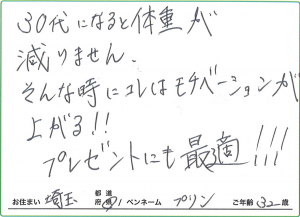 30代になると体重が
減りません.
そんな時にコレはモチベーションが
上がる!!
プレゼントにも最適!!!
お住まい 埼玉 都道府県 / ペンネーム プリン ご年齢 32 歳